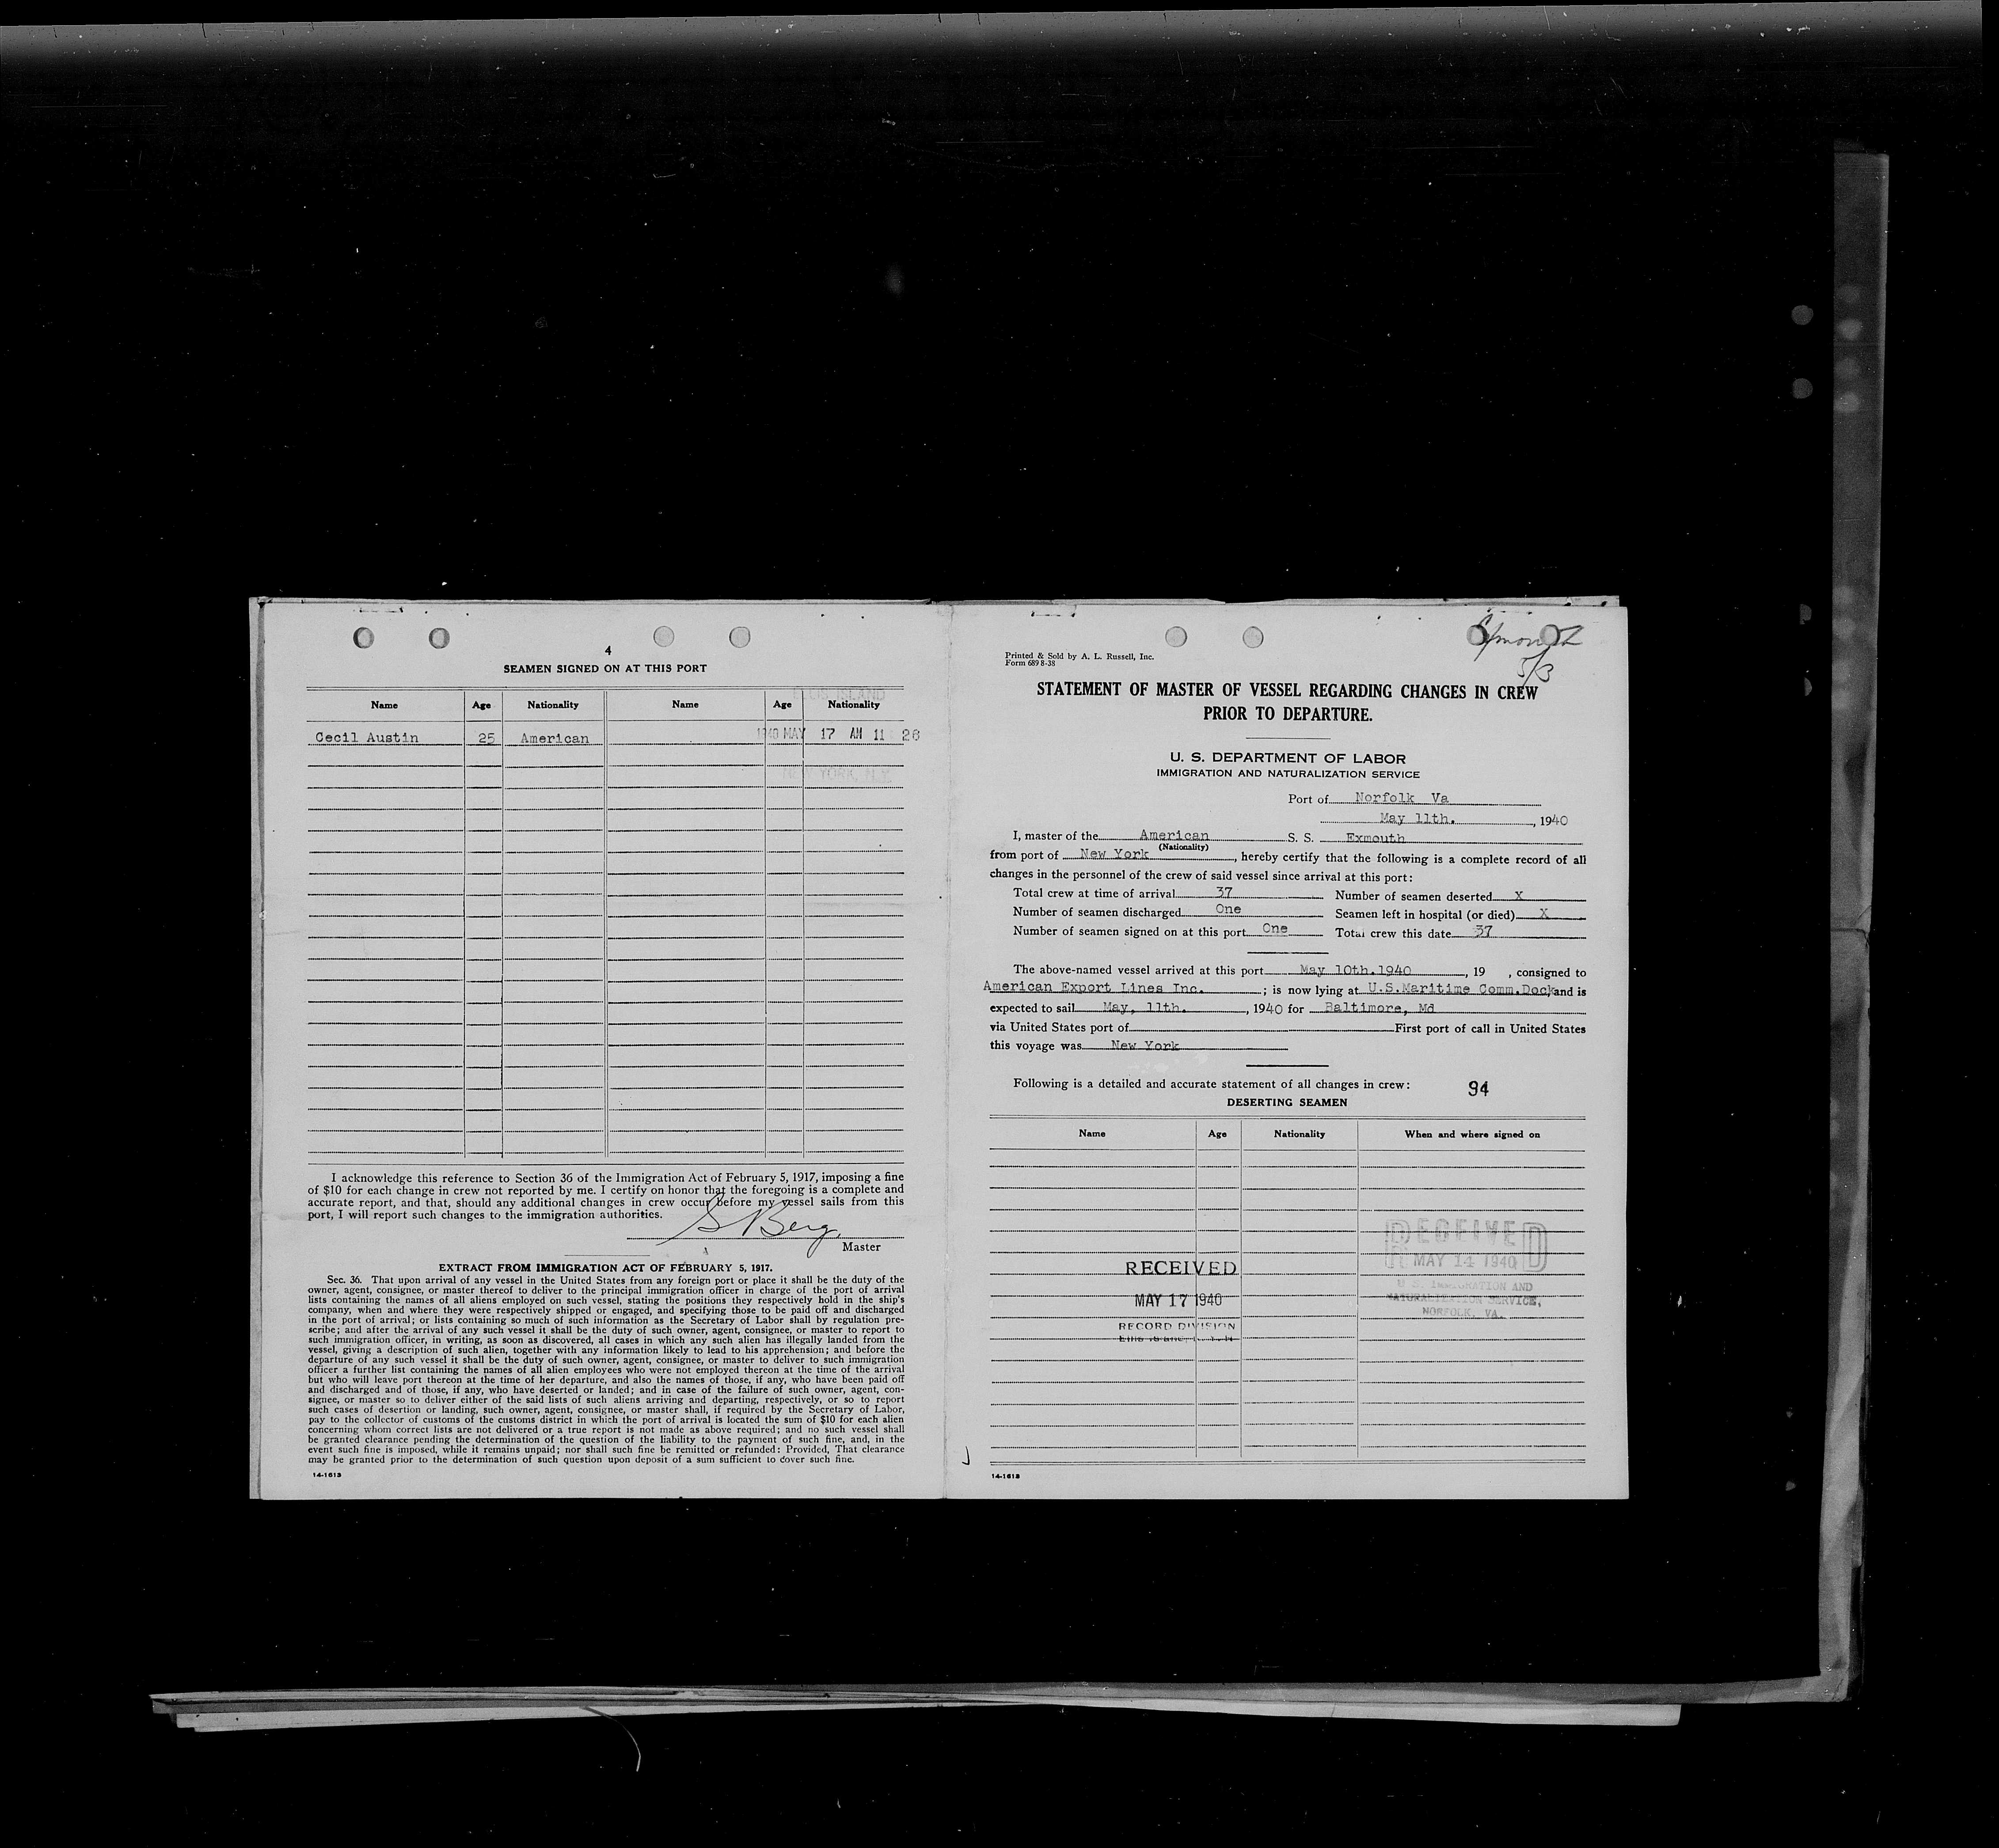 4
SEAMEN SIGNED ON AT THIS PORT
ELLIS ISLAND
Name Age Nationality Name Age Nationality
Cecil Austin 25 American
1940 MAY 17 AM 11 26
NEW YORK, N.Y.
I acknowledge this reference to Section 36 of the Immigration Act of February 5, 1917, imposing a fine
of $10 for each change in crew not reported by me. I certify on honor that the foregoing is a complete and
accurate report, and that, should any additional changes in crew occur before my vessel sails from this
port, I will report such changes to the immigration authorities.
S Berg.
Master
EXTRACT FROM IMMIGRATION ACT OF FEBRUARY 5, 1917.
Sec. 36. That upon arrival of any vessel in the United States from any foreign port or place it shall be the duty of the
owner, agent, consignee, or master thereof to deliver to the principal immigration officer in charge of the port of arrival
lists containing the names of all aliens employed on such vessel, stating the positions they respectively hold in the ship's
company, when and where they were respectively shipped or engaged, and specifying those to be paid off and discharged
in the port of arrival; or lists containing so much of such information as the Secretary of Labor shall by regulation pre-
scribe; and after the arrival of any such vessel it shall be the duty of such owner, agent, consignee, or master to report to
such immigration officer, in writing, as soon as discovered, all cases in which any such alien has illegally landed from the
vessel, giving a description of such alien, together with any information likely to lead to his apprehension; and before the
departure of any such vessel it shall be the duty of such owner, agent, consignee, or master to deliver to such immigration
officer a further list containing the names of all alien employees who were not employed thereon at the time of the arrival
but who will leave port thereon at the time of her departure, and also the names of those, if any, who have been paid off
and discharged and of those, if any, who have deserted or landed; and in case of the failure of such owner, agent, con-
signee, or master so to deliver either of the said lists of such aliens arriving and departing, respectively, or so to report
such cases of desertion or landing, such owner, agent, consignee, or master shall, if required by the Secretary of Labor,
pay to the collector of customs of the customs district in which the port of arrival is located the sum of $10 for each alien
concerning whom correct lists are not delivered or a true report is not made as above required; and no such vessel shall
be granted clearance pending the determination of the question of the liability to the payment of such fine, and, in the
event such fine is imposed, while it remains unpaid; nor shall such fine be remitted or refunded: Provided, That clearance
may be granted prior to the determination of such question upon deposit of a sum sufficient to cover such fine.
14-1613
Exmouth
5/3
Printed & Sold by A. L. Russell, Inc.
Form 689 8-38
STATEMENT OF MASTER OF VESSEL REGARDING CHANGES IN CREW
PRIOR TO DEPARTURE.
U. S. DEPARTMENT OF LABOR
IMMIGRATION AND NATURALIZATION SERVICE
Port of Norfolk Va
May 11th. , 1940
I, master of the American S. S. Exmouth
(Nationality)
from port of New York , hereby certify that the following is a complete record of all
changes in the personnel of the crew of said vessel since arrival at this port:
Total crew at time of arrival 37 Number of seamen deserted X
Number of seamen discharged One Seamen left in hospital (or died) X
Number of seamen signed on at this port One Total crew this date 37
The above-named vessel arrived at this port May 10th.1940 , 19 , consigned to
American Export Lines Inc. ; is now lying at U.S.Maritime Comm.Dock and is
expected to sail May, 11th. , 1940 for Baltimore, Md
via United States port of First port of call in United States
this voyage was New York
Following is a detailed and accurate statement of all changes in crew: 94
DESERTING SEAMEN
Name Age Nationality When and where signed on
RECEIVED
MAY 14 1940
U. S. IMMIGRATION AND
NATURALIZATION SERVICE,
NORFOLK, VA.
RECEIVED
MAY 17 1940
RECORD DIVISION
14-1613